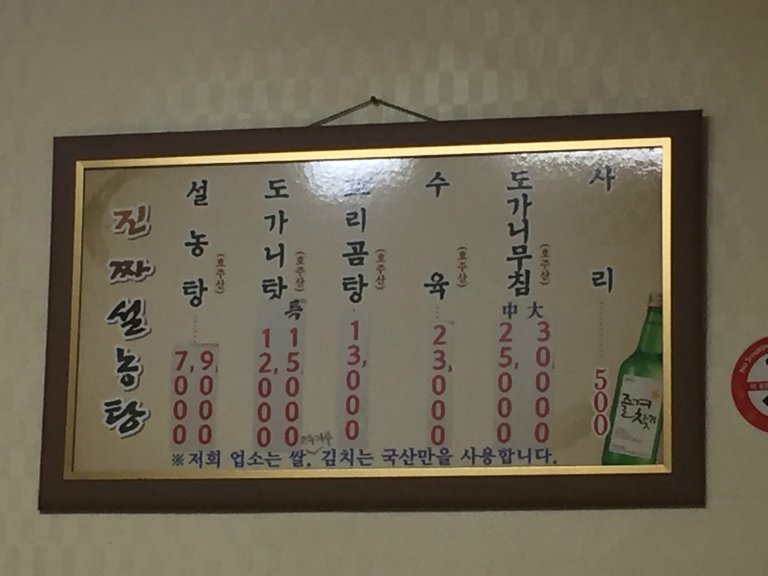 진짜설농탕
설농탕
(호주산)
7,000
9,000
도가니탕
(호주산)
特
12,000
15,000
꼬리곰탕
(호주산)
13,000
수육
(호주산)
23,000
도가니무침
(호주산)
中 大
25,000
30,000
사리
500
즐겨찾기
※저희 업소는 쌀, 김치는 국산만을 사용합니다.